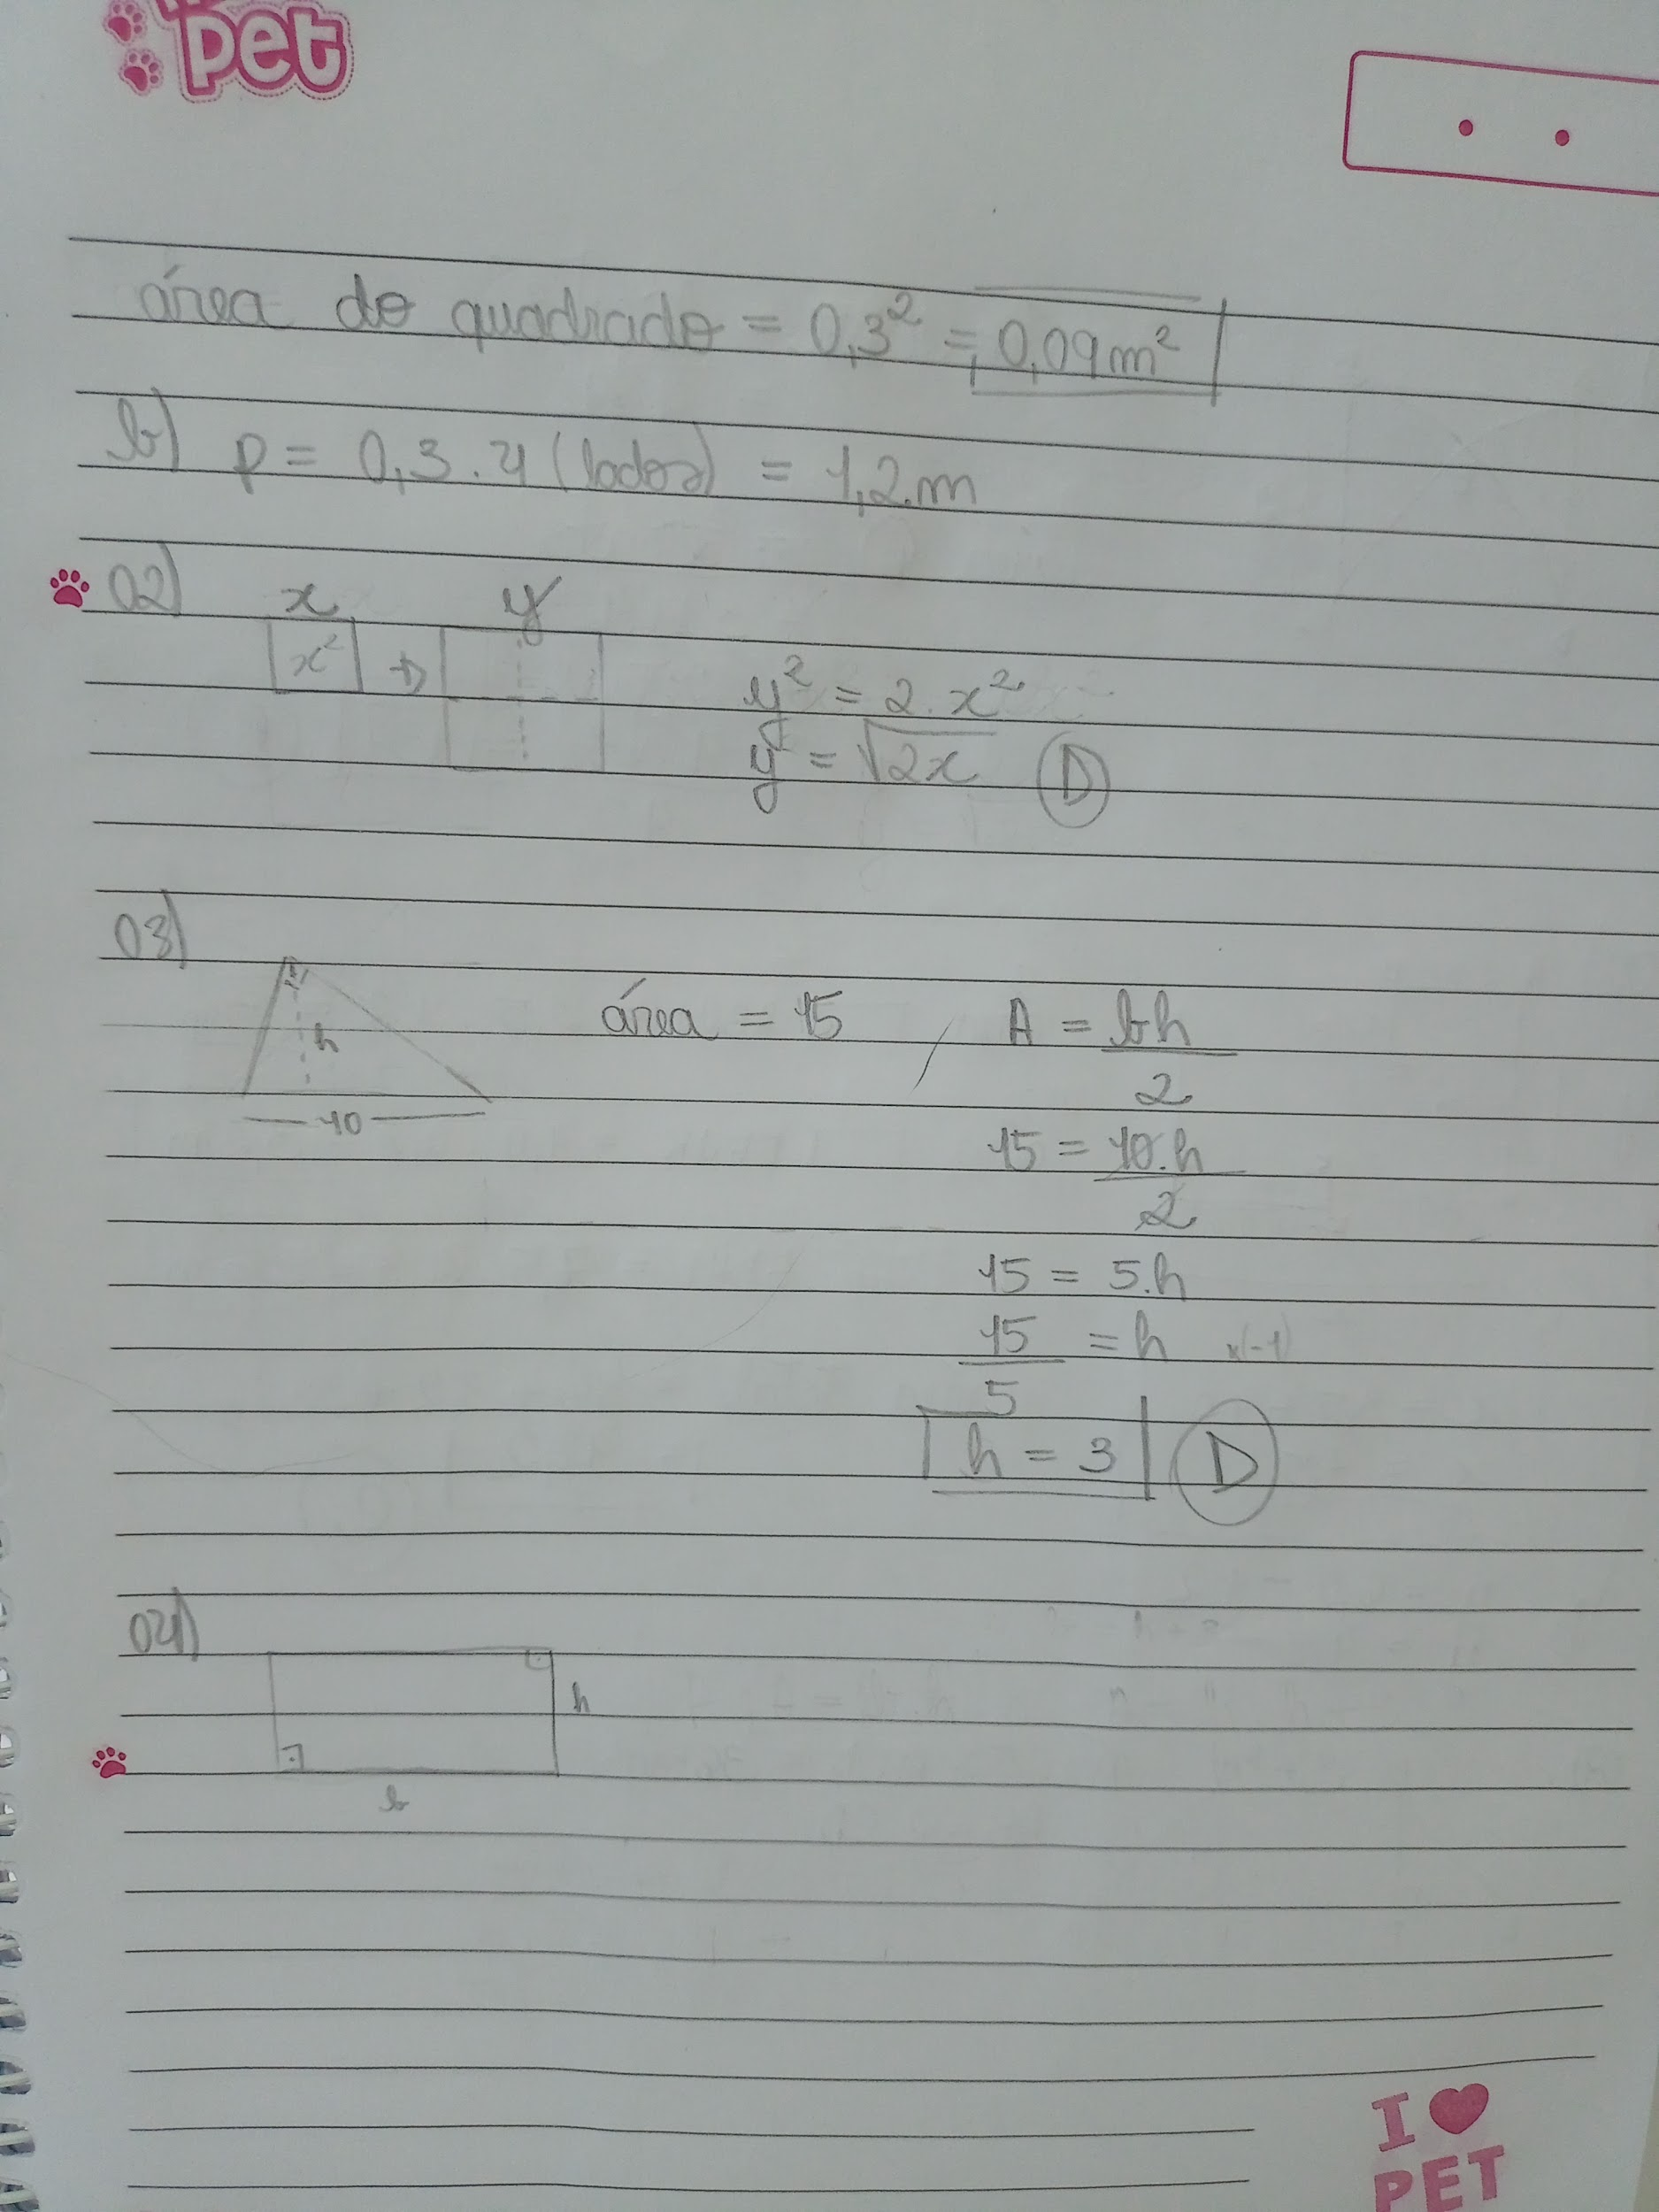 pet
área do quadrado = 0,3² = 0,09m²
b) P = 0,3 . 4 (lados) = 1,2m
02) x y
x²
y² = 2.x²
y = √2x D
03)
h
10
área = 15 A = bh
2
15 = 10.h
2
15 = 5.h
15 = h x(-1)
5
h = 3 D
04)
h
b
I ❤ PET